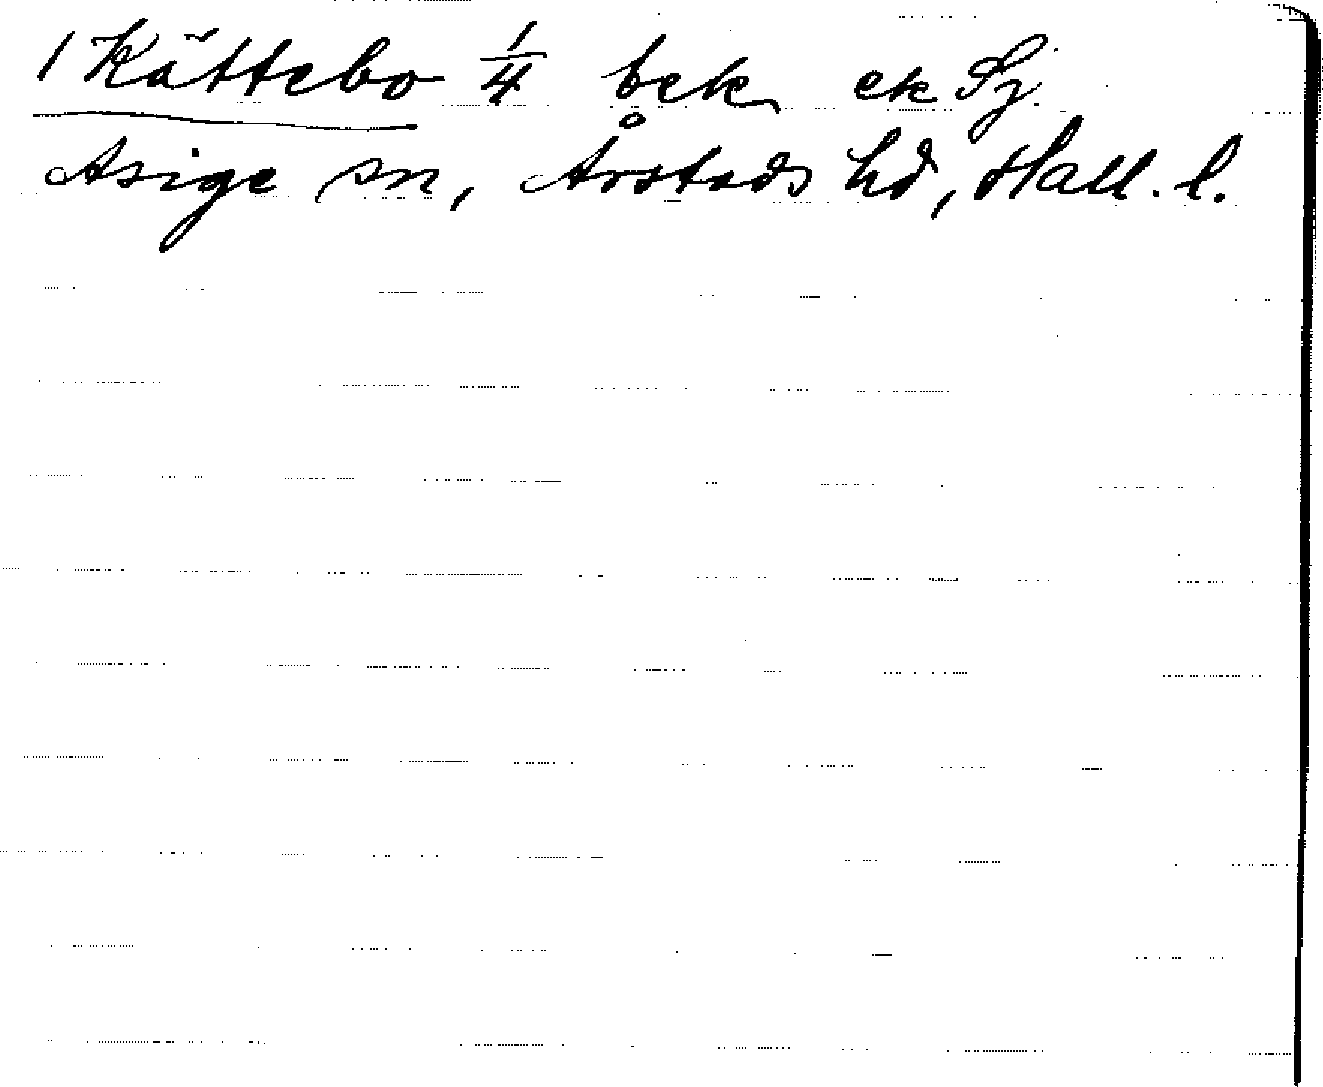 1 Kättebo 1/4 bek ek Sj
Asige sn, Årstads hd, Hall. l.